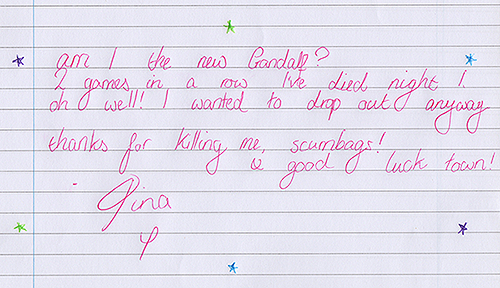 am I the new Gandalf?
2 games in a row I've died night 1.
oh well! I wanted to drop out anyway
thanks for killing me, scumbags!
& good luck town!
Gina